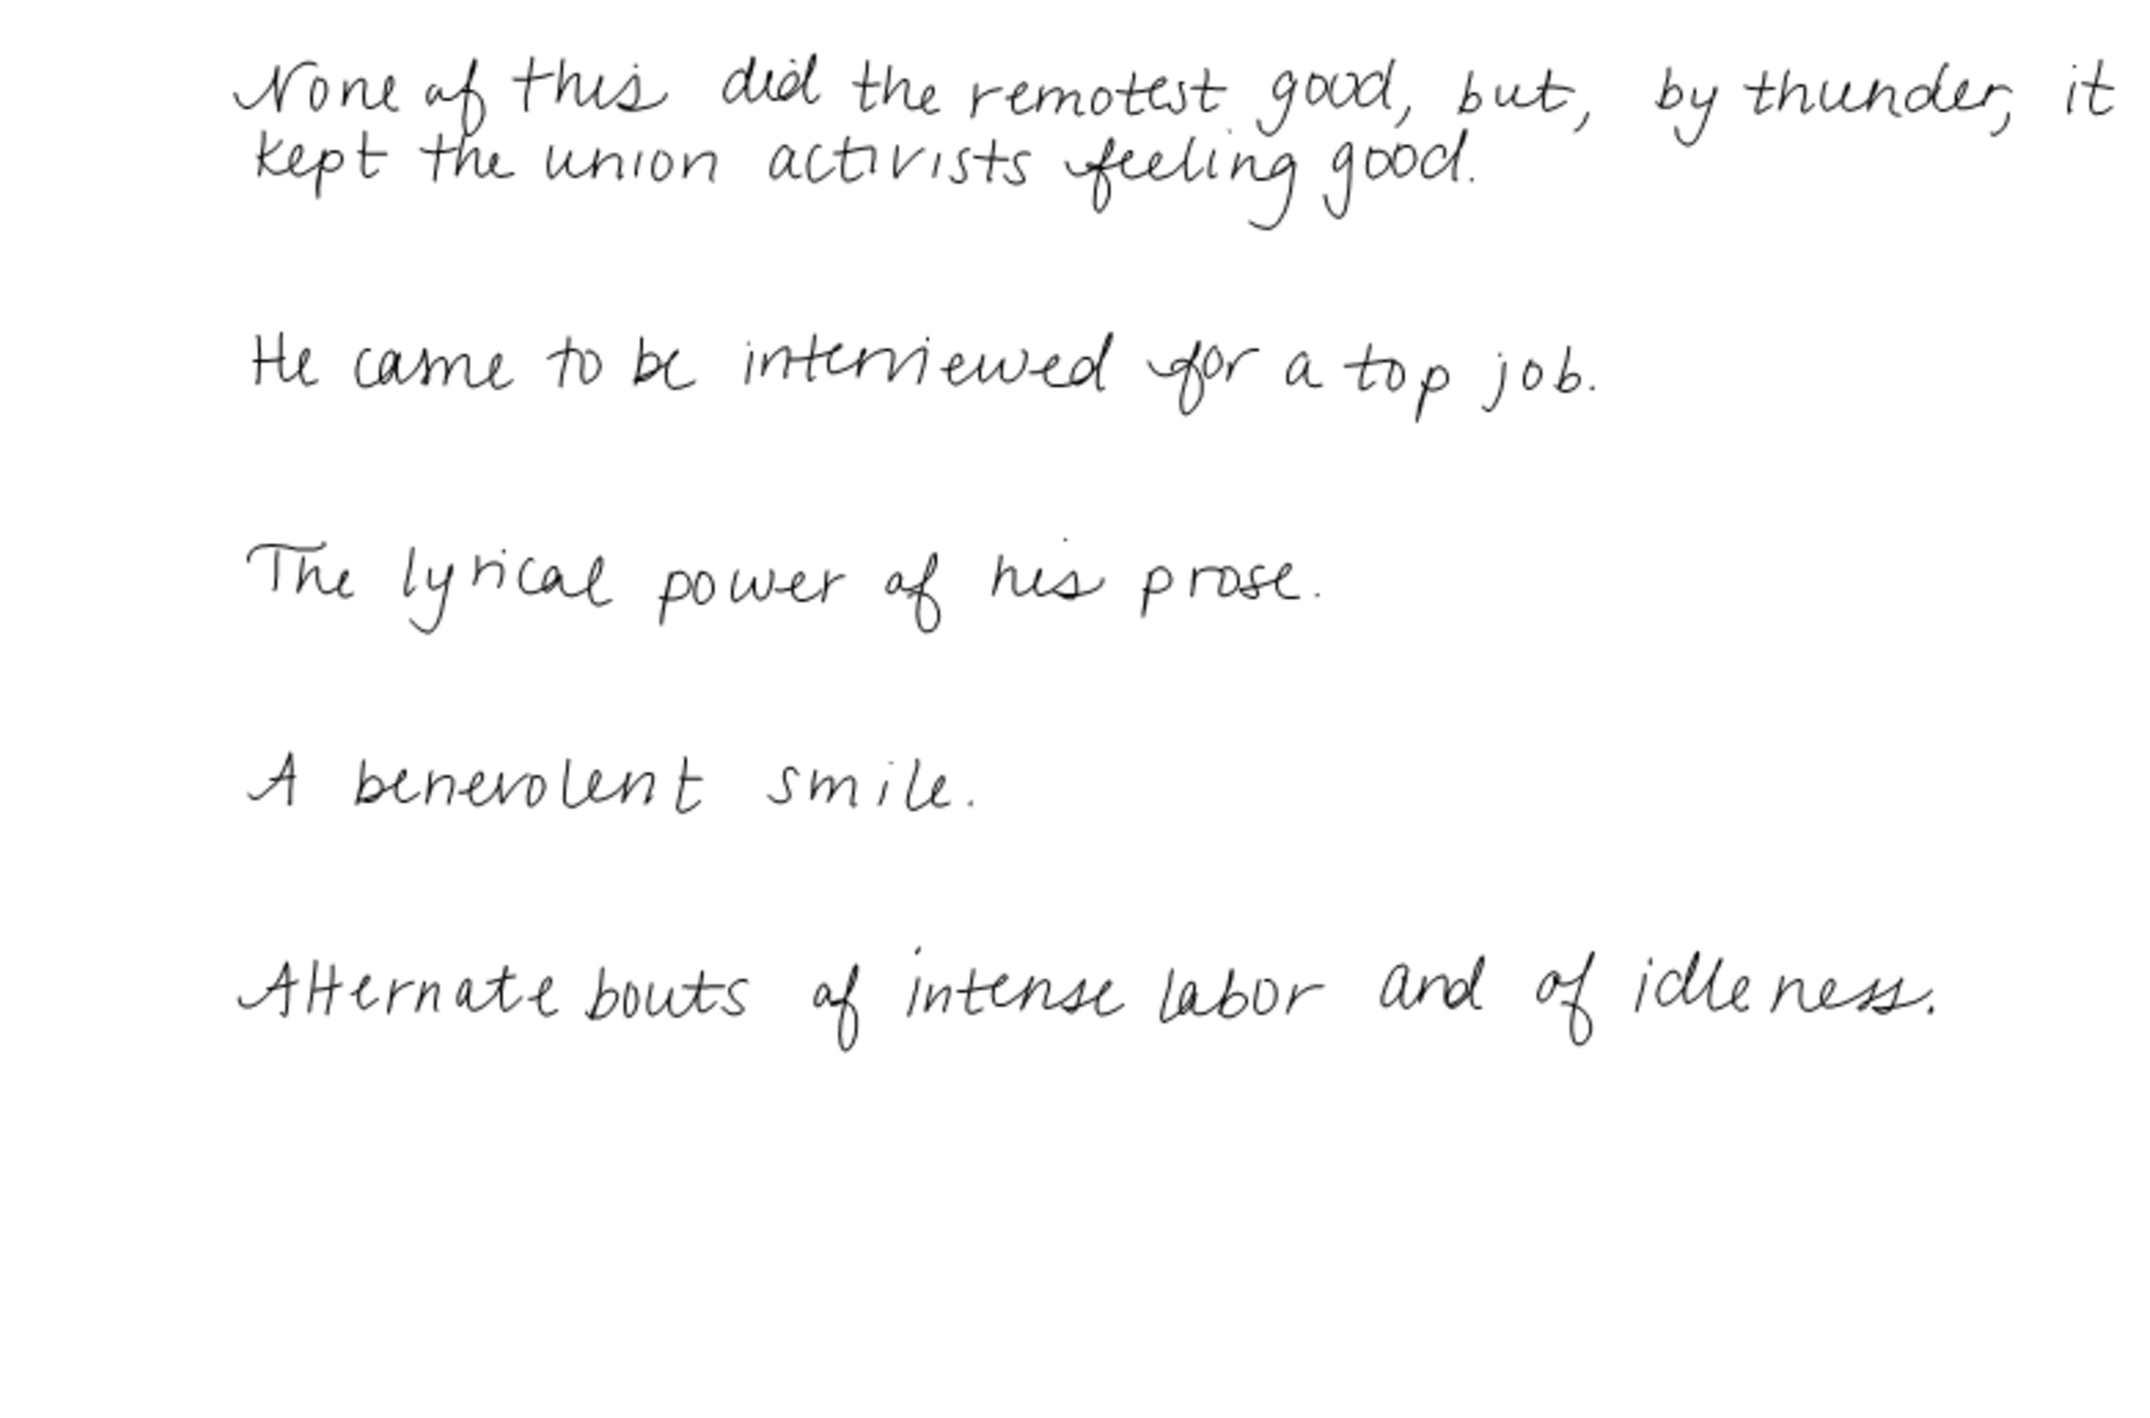 None of this did the remotest good, but, by thunder, it
kept the union activists feeling good.
He came to be interviewed for a top job.
The lyrical power of his prose.
A benevolent smile.
Alternate bouts of intense labor and of idleness.